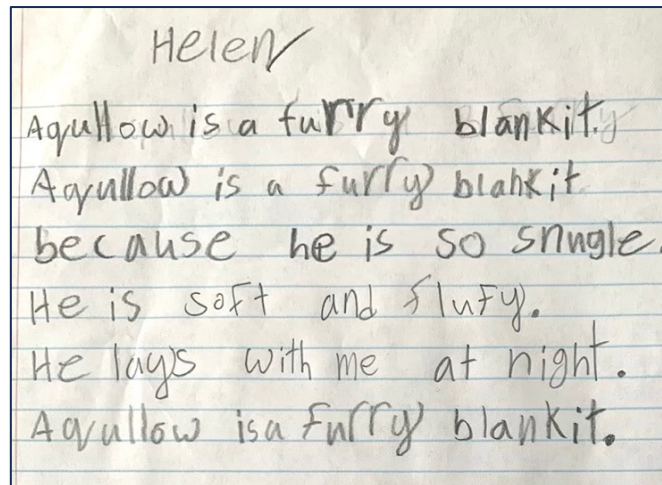 Helen
Aqullow is a furry blankit.
Aqullow is a furry blankit
because he is so snugle.
He is soft and flufy.
He lays with me at night.
Aqullow is a furry blankit.